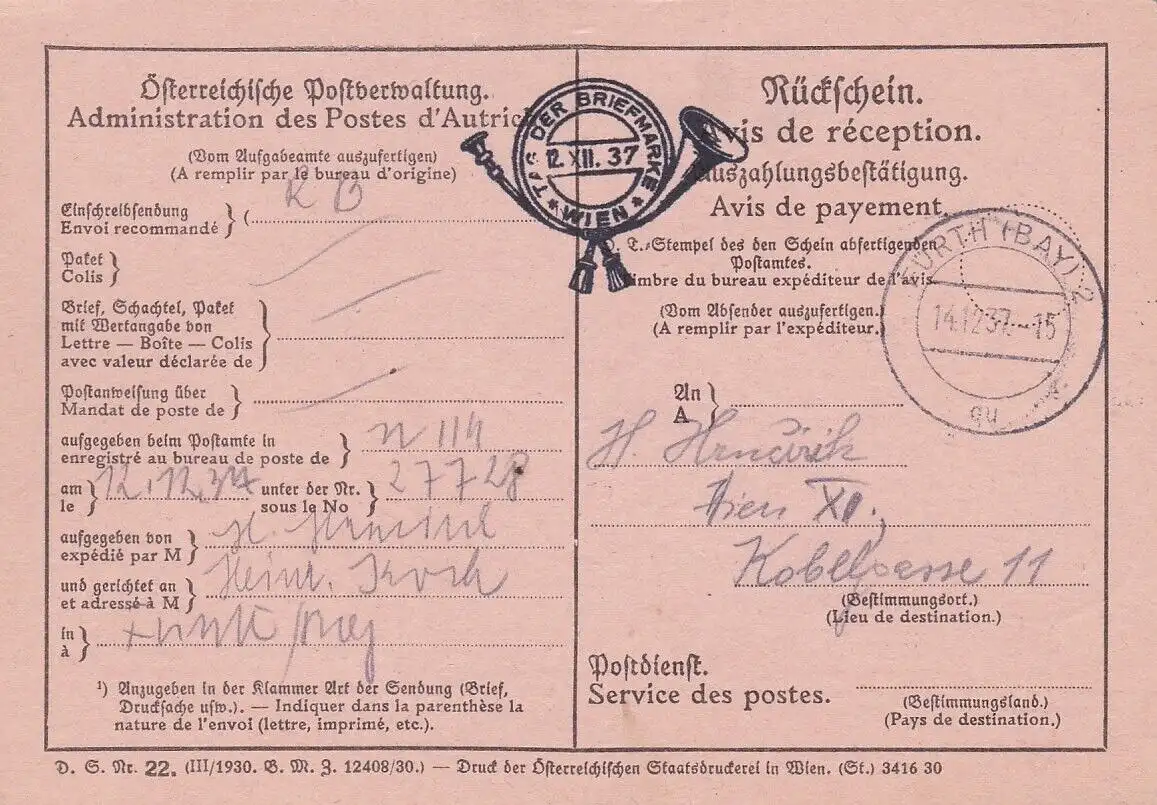 Österreichische Postverwaltung.
Administration des Postes d'Autriche
(Vom Aufgabeamte auszufertigen)
(A remplir par le bureau d'origine)
Einschreibsendung
Envoi recommandé } (
K B
Paket
Colis }
Brief, Schachtel, Paket
mit Wertangabe von
Lettre — Boîte — Colis
avec valeur déclarée de }
Postanweisung über
Mandat de poste de }
aufgegeben beim Postamte in
enregistré au bureau de poste de } W 114
am
le } 12.12.37 unter der Nr.
sous le No } 27728
aufgegeben von
expédié par M } H. Hrncirik
und gerichtet an
et adressé à M } Heinr. Koch
in
à }
¹) Anzugeben in der Klammer Art der Sendung (Brief,
Drucksache usw.). — Indiquer dans la parenthèse la
nature de l'envoi (lettre, imprimé, etc.).
TAG DER BRIEFMARKE
12.XII.37
* WIEN *
Rückschein.
Avis de réception.
Auszahlungsbestätigung.
Avis de payement.
O. T.-Stempel des den Schein abfertigenden
Postamtes.
Timbre du bureau expéditeur de l'avis.
(Vom Absender auszufertigen.)
(A remplir par l'expéditeur.)
FÜRTH (BAY) 2
14.12.37.-15
An
A }
H. Hrncirik
Wien XI.,
Kobelgasse 11
(Bestimmungsort.)
(Lieu de destination.)
Postdienst.
Service des postes.
(Bestimmungsland.)
(Pays de destination.)
D. S. Nr. 22. (III/1930. B. M. Z. 12408/30.) — Druck der Österreichischen Staatsdruckerei in Wien. (St.) 3416 30